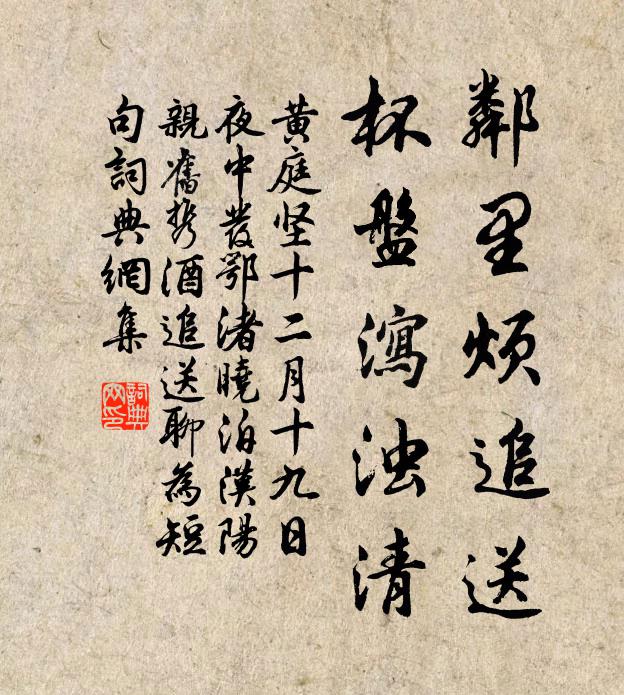 鄰里煩追送
杯盤瀉浊清
黄庭坚十二月十九日
夜中發鄂渚曉泊漢陽
親舊携酒追送聊為短
句詞典網集
詞典
网印